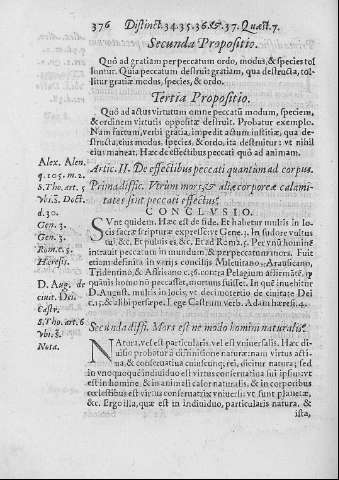 376 Distinct. 34. 35. 36. &. 37. Quæst. 7.
Secunda Propositio.
Quò ad gratiam per peccatum ordo, modus, & species tol
luntur. Quia peccatum destruit gratiam, qua destructa, tol-
litur gratiæ modus, species, & ordo.
Tertia Propositio.
Quò ad actus virtutum omne peccatū modum, speciem,
& ordinem virtutis oppositæ destruit. Probatur exemplo.
Nam furtum, verbi gratia, impedit actum iustitiæ, qua de-
structa, eius modus, species, & ordo, ita destruitur: vt nihil
eius maneat. Hæc de effectibus peccati quò ad animam.
Alex. Alen.
q. 105. m. 2.
S. Tho. art. 5
Vbi. S. Doct.
d. 30.
Gen. 3.
Gen. 3.
Rom. c. 5.
Heresis.
D. Aug. de
ciuit. Dei.
Castr.
S. Tho. art. 6
Vbi. S.
Nota.
Artic. II. De effectibus peccati quantum ad corpus.
Prima diffic. Vtrum mors, & aliæ corporeæ calami-
tates sint peccati effectus?
CONCLVSIO.
SVnt quidem. Hæc est de fide. Et habetur multis in lo-
cis sacræ scripturæ expressè vt Gene. 3. In sudore vultus
tui, &c. Et puluis es, &c. Et ad Rom. 5. Per vnū hominē
intrauit peccatum in mundum: & per peccatum mors. Fuit
etiam definita in varijs concilijs Mileuitano, Arausicano,
Tridentino, & Africano c. 76. contra Pelagium assirmātē, q̃
quāuis homo nō peccasset, morturus fuisset. In quē inuehitur
D. August. multis in locis, vt decimotertio de ciuitate Dei
c. 15. & alibi persæpe. Lege Castrum verb. Adam hæres. 4.
Secunda diffi. Mors est ne modo homini naturalis?
NAtura, vel est particularis, vel est vniuersalis. Hæc di-
uisio probatur à diffinitione naturæ: nam virtus acti-
ua, & conseruatiua cuiuscunq; rei, dicitur natura; sed
in vno quoq; indiuiduo est virtus conseruatiua sui ipsius: vt
est in homine, & in animali calor naturalis, & in corporibus
cœlestibus est virtus conseruatrix vniuersi: vt sunt planetæ,
&c. Ergo illa, quæ est in indiuiduo, particularis natura, &
ista,